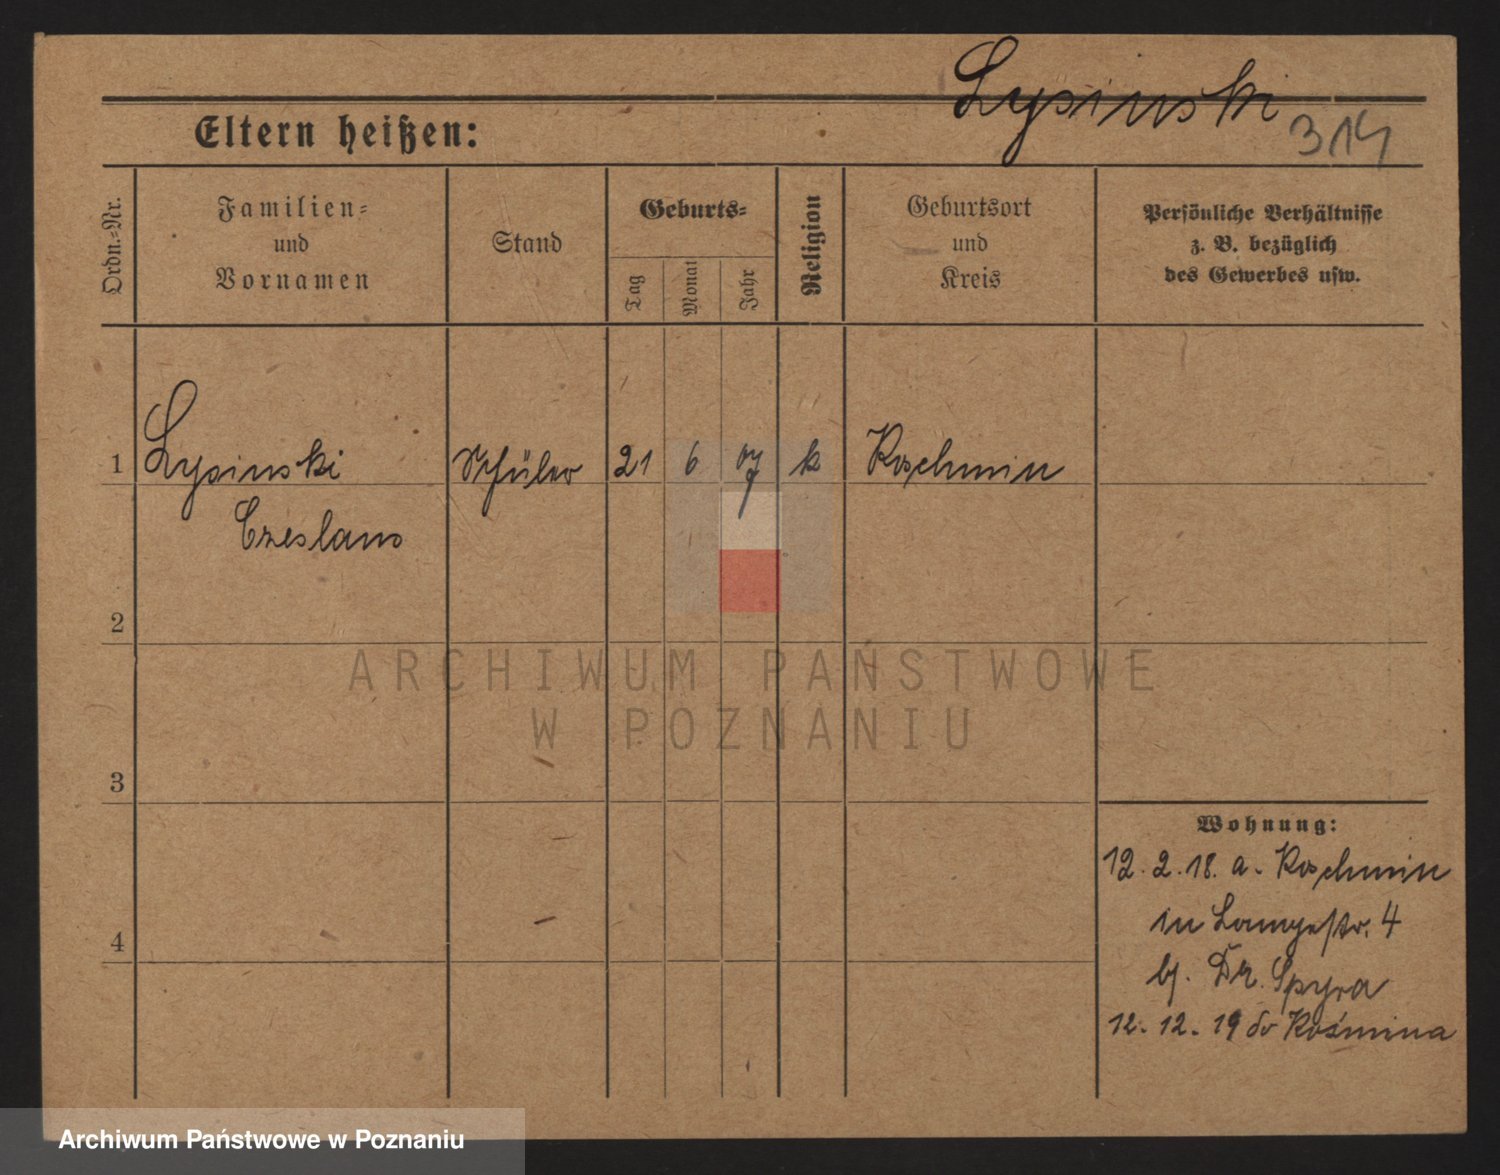 Lysinski
314
Eltern heißen:
Ordn.-Nr.
Familien-
und
Vornamen
Stand
Geburts-
Tag
Monat
Jahr
Religion
Geburtsort
und
Kreis
Persönliche Verhältnisse
z. B. bezüglich
des Gewerbes usw.
1 Lysinski Schüler 21 6 07 k Koschmin
Czeslaus
2
ARCHIWUM PAŃSTWOWE
W POZNANIU
3
Wohnung:
12. 2. 18. a. Koschmin
in Langestr. 4
bj. Dr. Spyra
4
12. 12. 19 do Koźmina
Archiwum Państwowe w Poznaniu